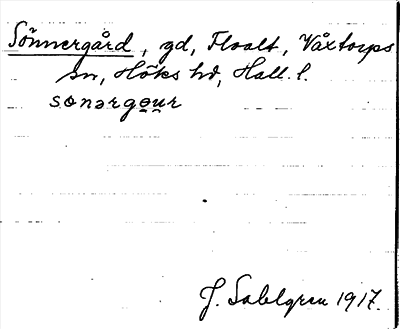 Sönnergård, gd, Floalt, Våxtorps
sn, Höks hd, Hall. l.
sonərgəu̯r
J. Sahlgren 1917.